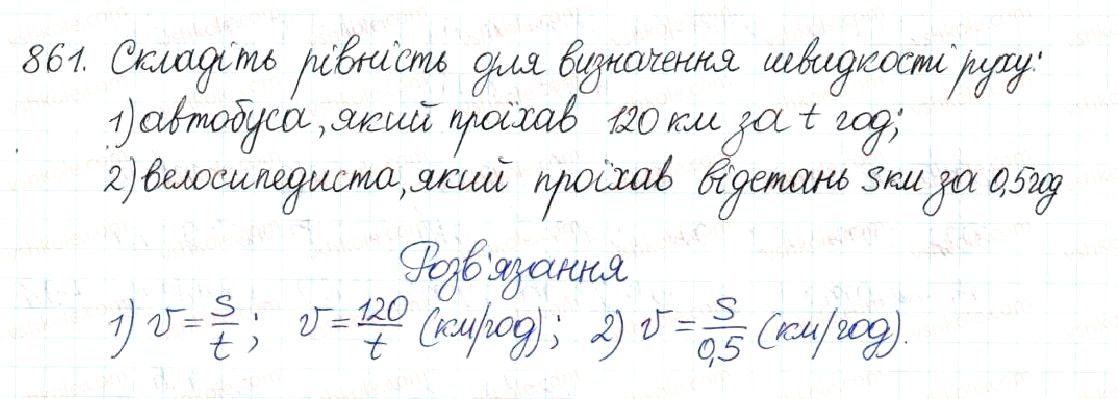 861. Складіть рівність для визначення швидкості руху:
1) автобуса, який проїхав 120 км за t год;
2) велосипедиста, який проїхав відстань s км за 0,5 год
Розв'язання
1) v = s/t; v = 120/t (км/год); 2) v = s/0,5 (км/год).